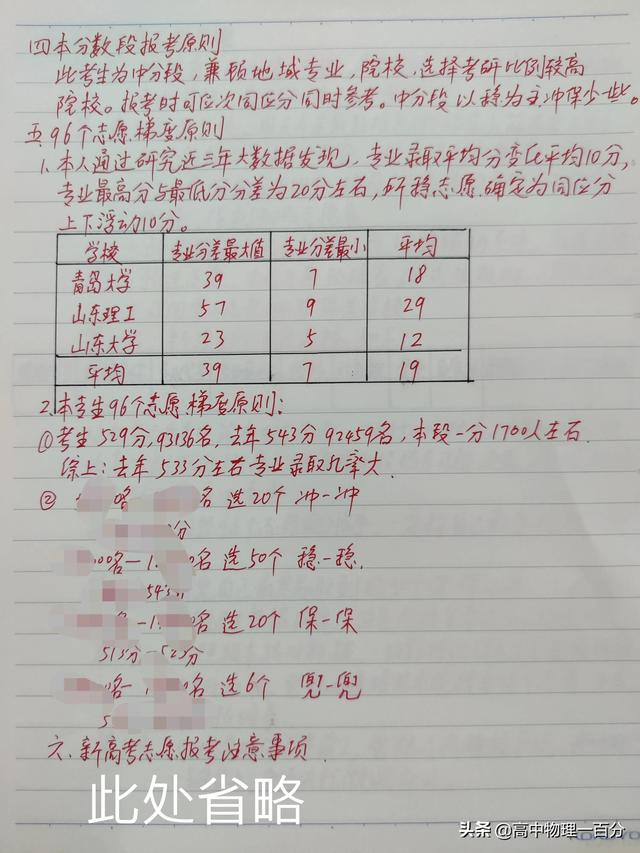 四本分数段报考原则
此考生为中分段，兼顾地域专业，院校，选择考研比例较高
院校。报考时可位次同位分同时参考。中分段以稳为主冲保少一些。
五.96个志愿梯度原则
1.本人通过研究近三年大数据发现，专业录取平均分变化平均10分，
专业最高分与最低分分差为20分左右，所稳志愿确定为同位分
上下浮动10分。
学校 专业分差最大值 专业分差最小 平均
青岛大学 39 7 18
山东理工 57 9 29
山东大学 23 5 12
平均 39 7 19
2.本考生96个志愿梯度原则：
①考生529分,93136名，去年543分92459名，本段一分1700人左右.
综上：去年533分左右专业录取几率大.
② 名 选20个 冲-冲
分
00名-1 名 选50个 稳-稳.
543
名-1 名 选20个 保-保
513分-523分
名- 名 选6个 兜-兜
5
六.新高考志愿报考注意事项
此处省略
头条 @高中物理一百分